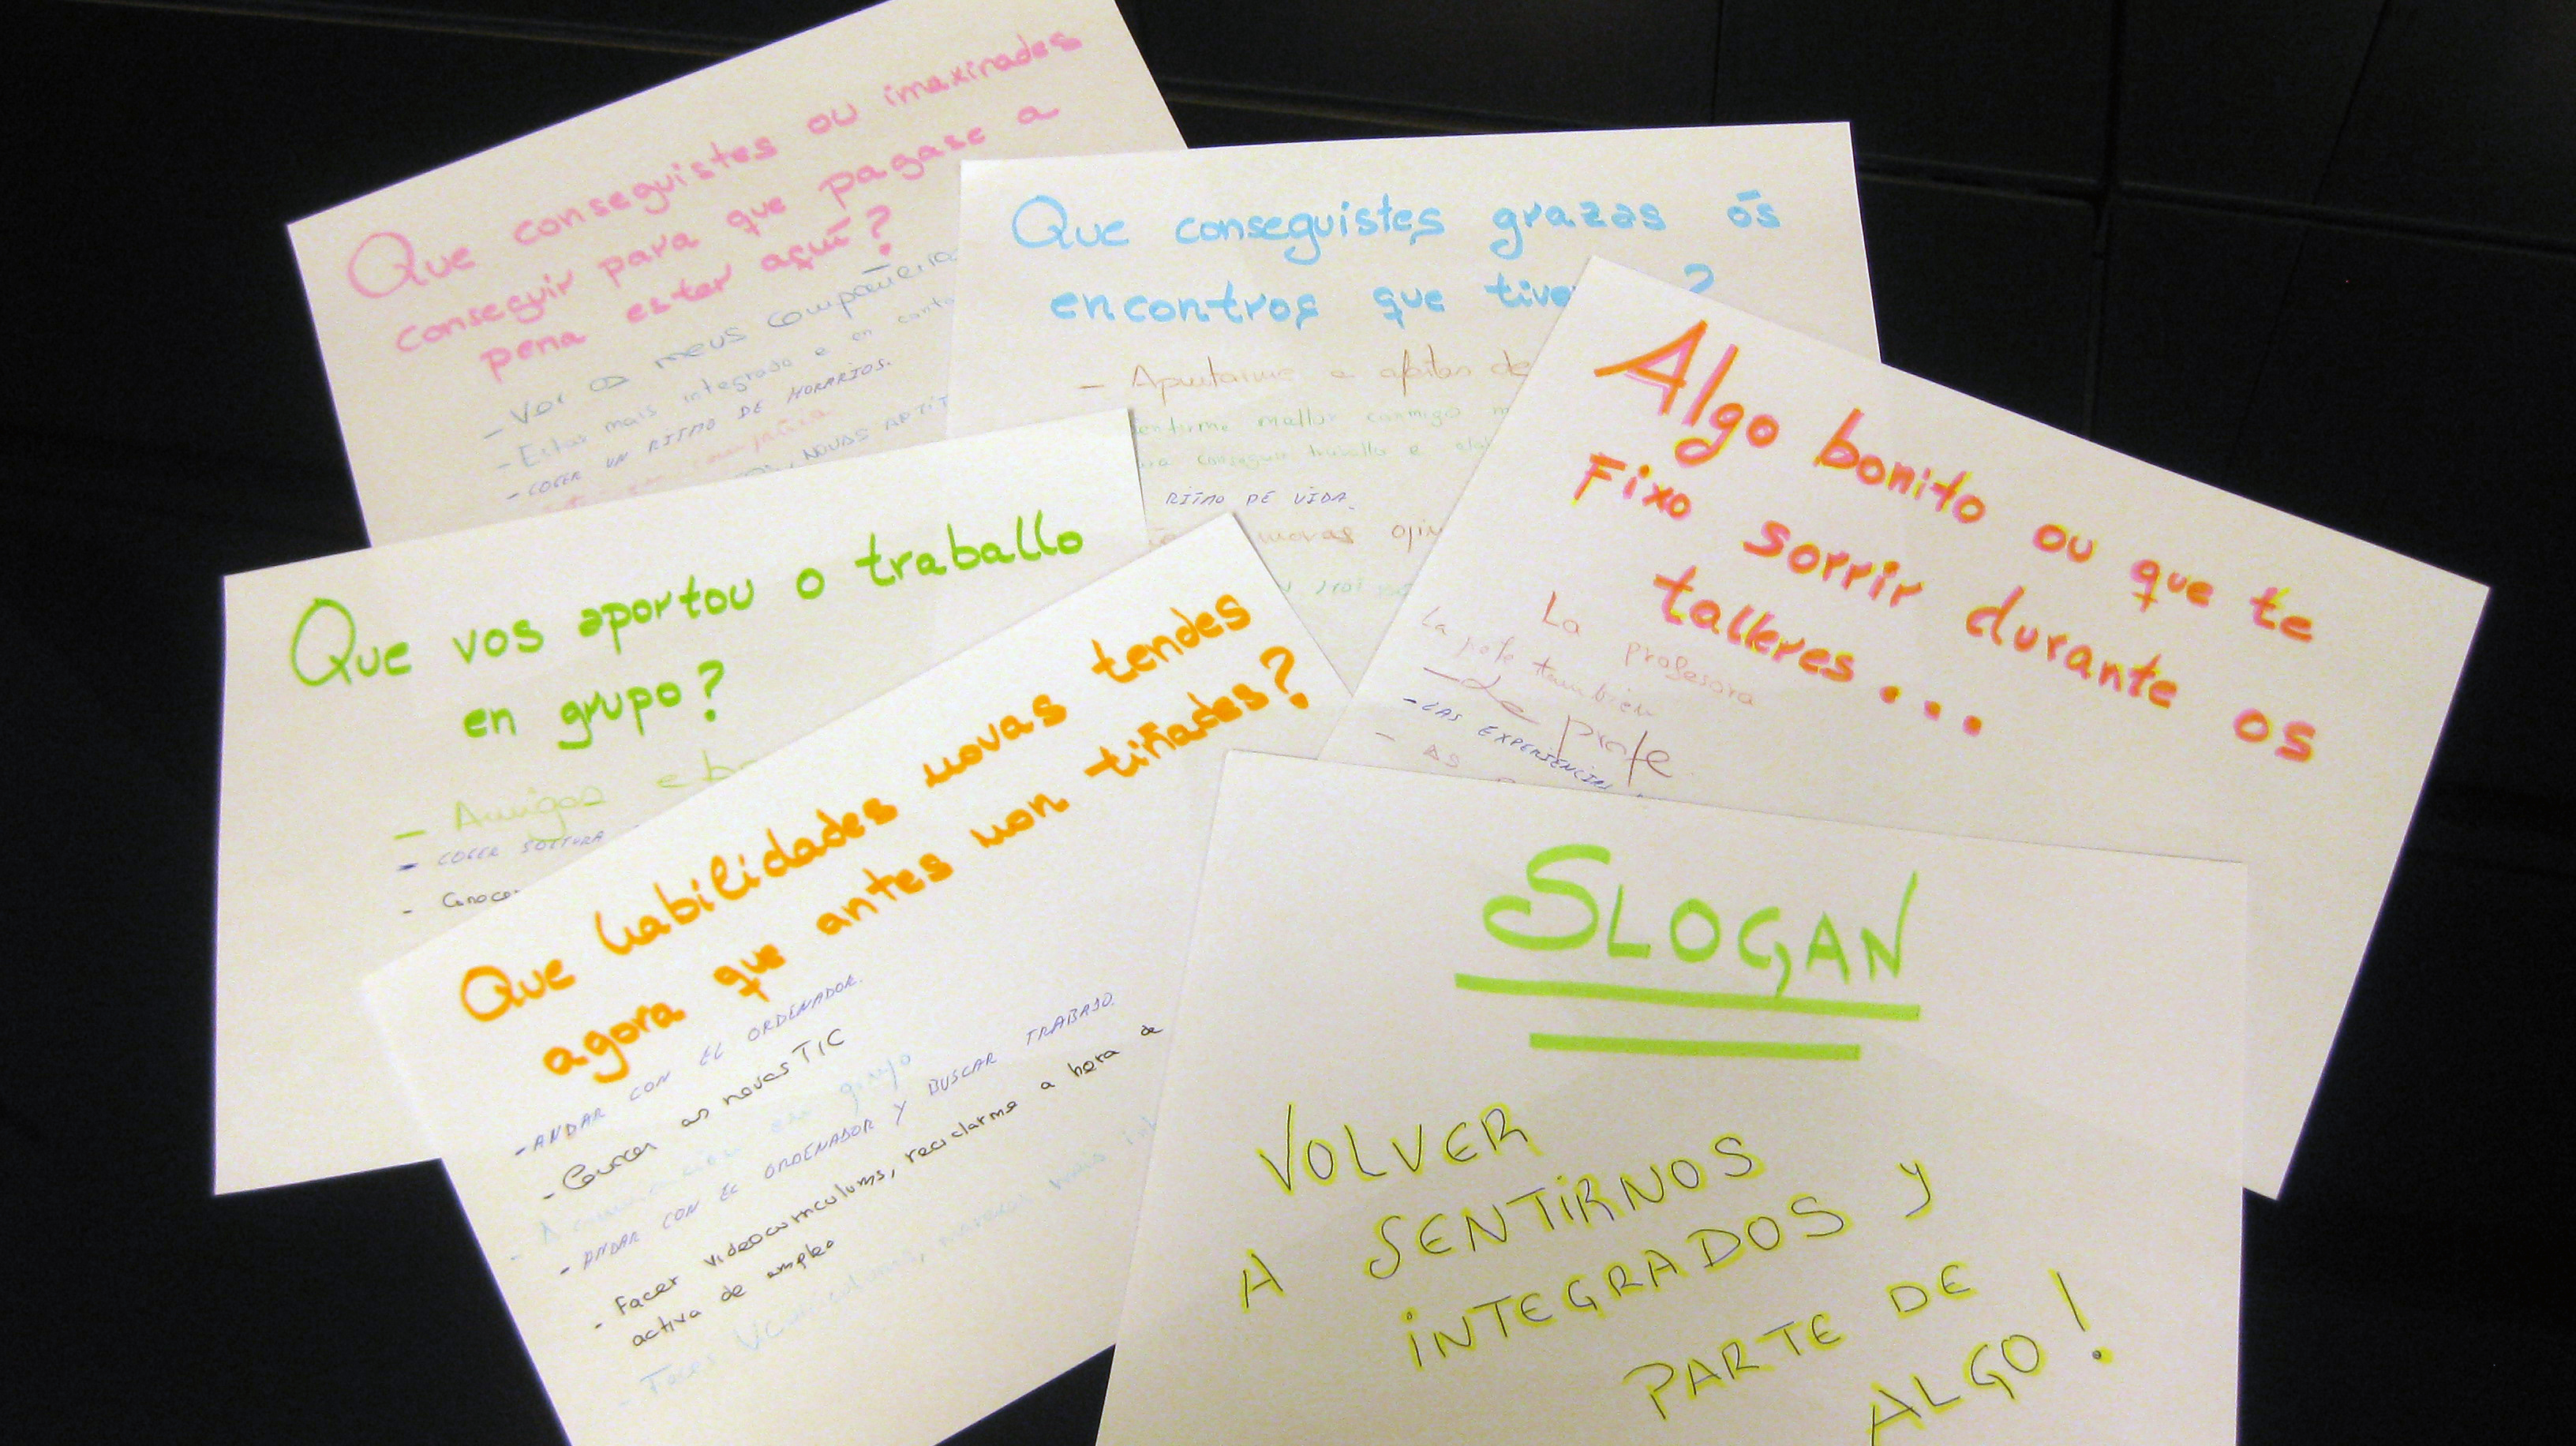 Que conseguistes ou imaxinades
conseguir para que pagase a
pena estar aquí?
- Ver os meus compañeiro
- Estar mais integrado e en conta
- COGER UN RITMO DE HORARIOS.
NOVAS APTIT
Que conseguistes grazas ós
encontros que tive ?
- Apuntarme a
sentirme mellor conmigo m
conseguir traballo e
RITMO DE VIDA.
novas opin
Algo bonito ou que te
Fixo sorrir durante os
talleres...
La profesora
La profe tambien
- La profe
- LAS EXPERIENCIAS
- AS
Que vos aportou o traballo
en grupo?
- Amigos e bo
- COGER SOLTURA
- Conocer
Que habilidades novas tendes
agora que antes non tiñades?
- ANDAR CON EL ORDENADOR.
- Coñecer as novas TIC
- A comunicación en grupo
- ANDAR CON EL ORDENADOR Y BUSCAR TRABAJO.
- Facer videocurriculums, reciclarme a hora de
activa de empleo
- Facer
SLOGAN
VOLVER
A SENTIRNOS
INTEGRADOS Y
PARTE DE
ALGO!